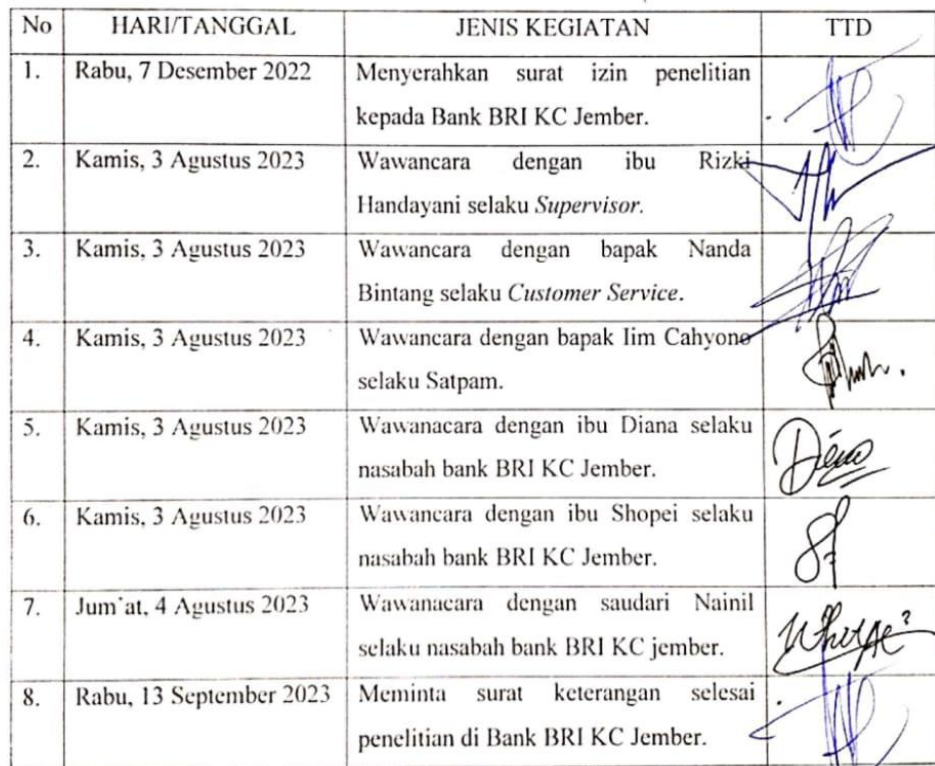 No HARI/TANGGAL JENIS KEGIATAN TTD
1. Rabu, 7 Desember 2022 Menyerahkan surat izin penelitian
kepada Bank BRI KC Jember.
2. Kamis, 3 Agustus 2023 Wawancara dengan ibu Rizki
Handayani selaku Supervisor.
3. Kamis, 3 Agustus 2023 Wawancara dengan bapak Nanda
Bintang selaku Customer Service.
4. Kamis, 3 Agustus 2023 Wawancara dengan bapak Iim Cahyono
selaku Satpam.
5. Kamis, 3 Agustus 2023 Wawanacara dengan ibu Diana selaku
nasabah bank BRI KC Jember.
6. Kamis, 3 Agustus 2023 Wawancara dengan ibu Shopei selaku
nasabah bank BRI KC Jember.
7. Jum'at, 4 Agustus 2023 Wawanacara dengan saudari Nainil
selaku nasabah bank BRI KC jember.
8. Rabu, 13 September 2023 Meminta surat keterangan selesai
penelitian di Bank BRI KC Jember.